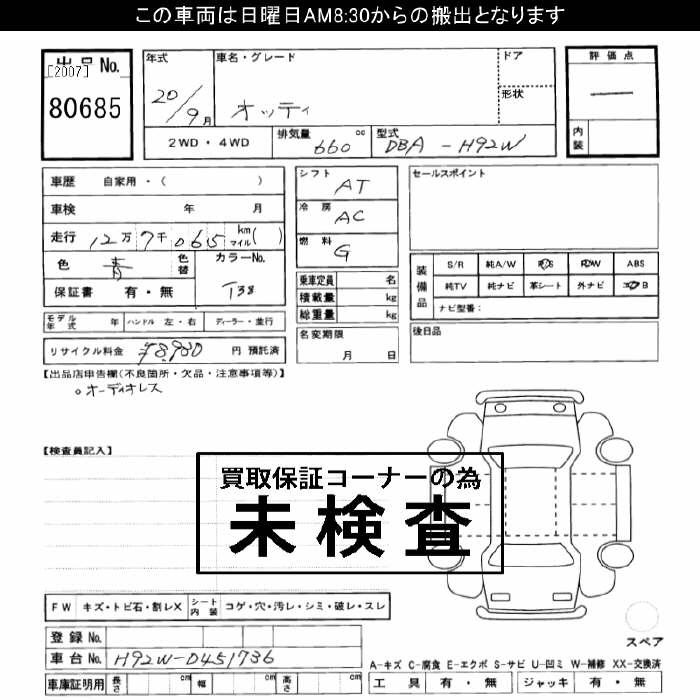 この車両は日曜日AM8:30からの搬出となります
出品No.
[2007]
80685
年式
20/9月
車名・グレード
オッティ
ドア
形状
評価点
内装
2WD・4WD
排気量 660 cc
型式 DBA-H92W
車歴 自家用・( )
車検 年 月
走行 12万7千065 km マイル( )
色 青 色替
カラーNo. T38
保証書 有・無
モデル年式 年 ハンドル 左・右 ディーラー・並行
リサイクル料金 ¥8,980 円 預託済
シフト AT
冷房 AC
燃料 G
乗車定員 名
積載量 kg
総重量 kg
名変期限
月 日
セールスポイント
装備品
S/R 純A/W P/S P/W ABS
純TV 純ナビ 革シート 外ナビ エアB
ナビ型番:
後日品
【出品店申告欄(不良箇所・欠品・注意事項等)】
○オーディオレス
【検査員記入】
買取保証コーナーの為
未検査
FW キズ・トビ石・割レX シート内装 コゲ・穴・汚レ・シミ・破レ・スレ
登録No.
車台No. H92W-D451736
車庫証明用 長さ cm 幅 cm 高さ cm
スペア
A-キズ C-腐食 E-エクボ S-サビ U-凹ミ W-補修 XX-交換済
工具 有・無 ジャッキ 有・無